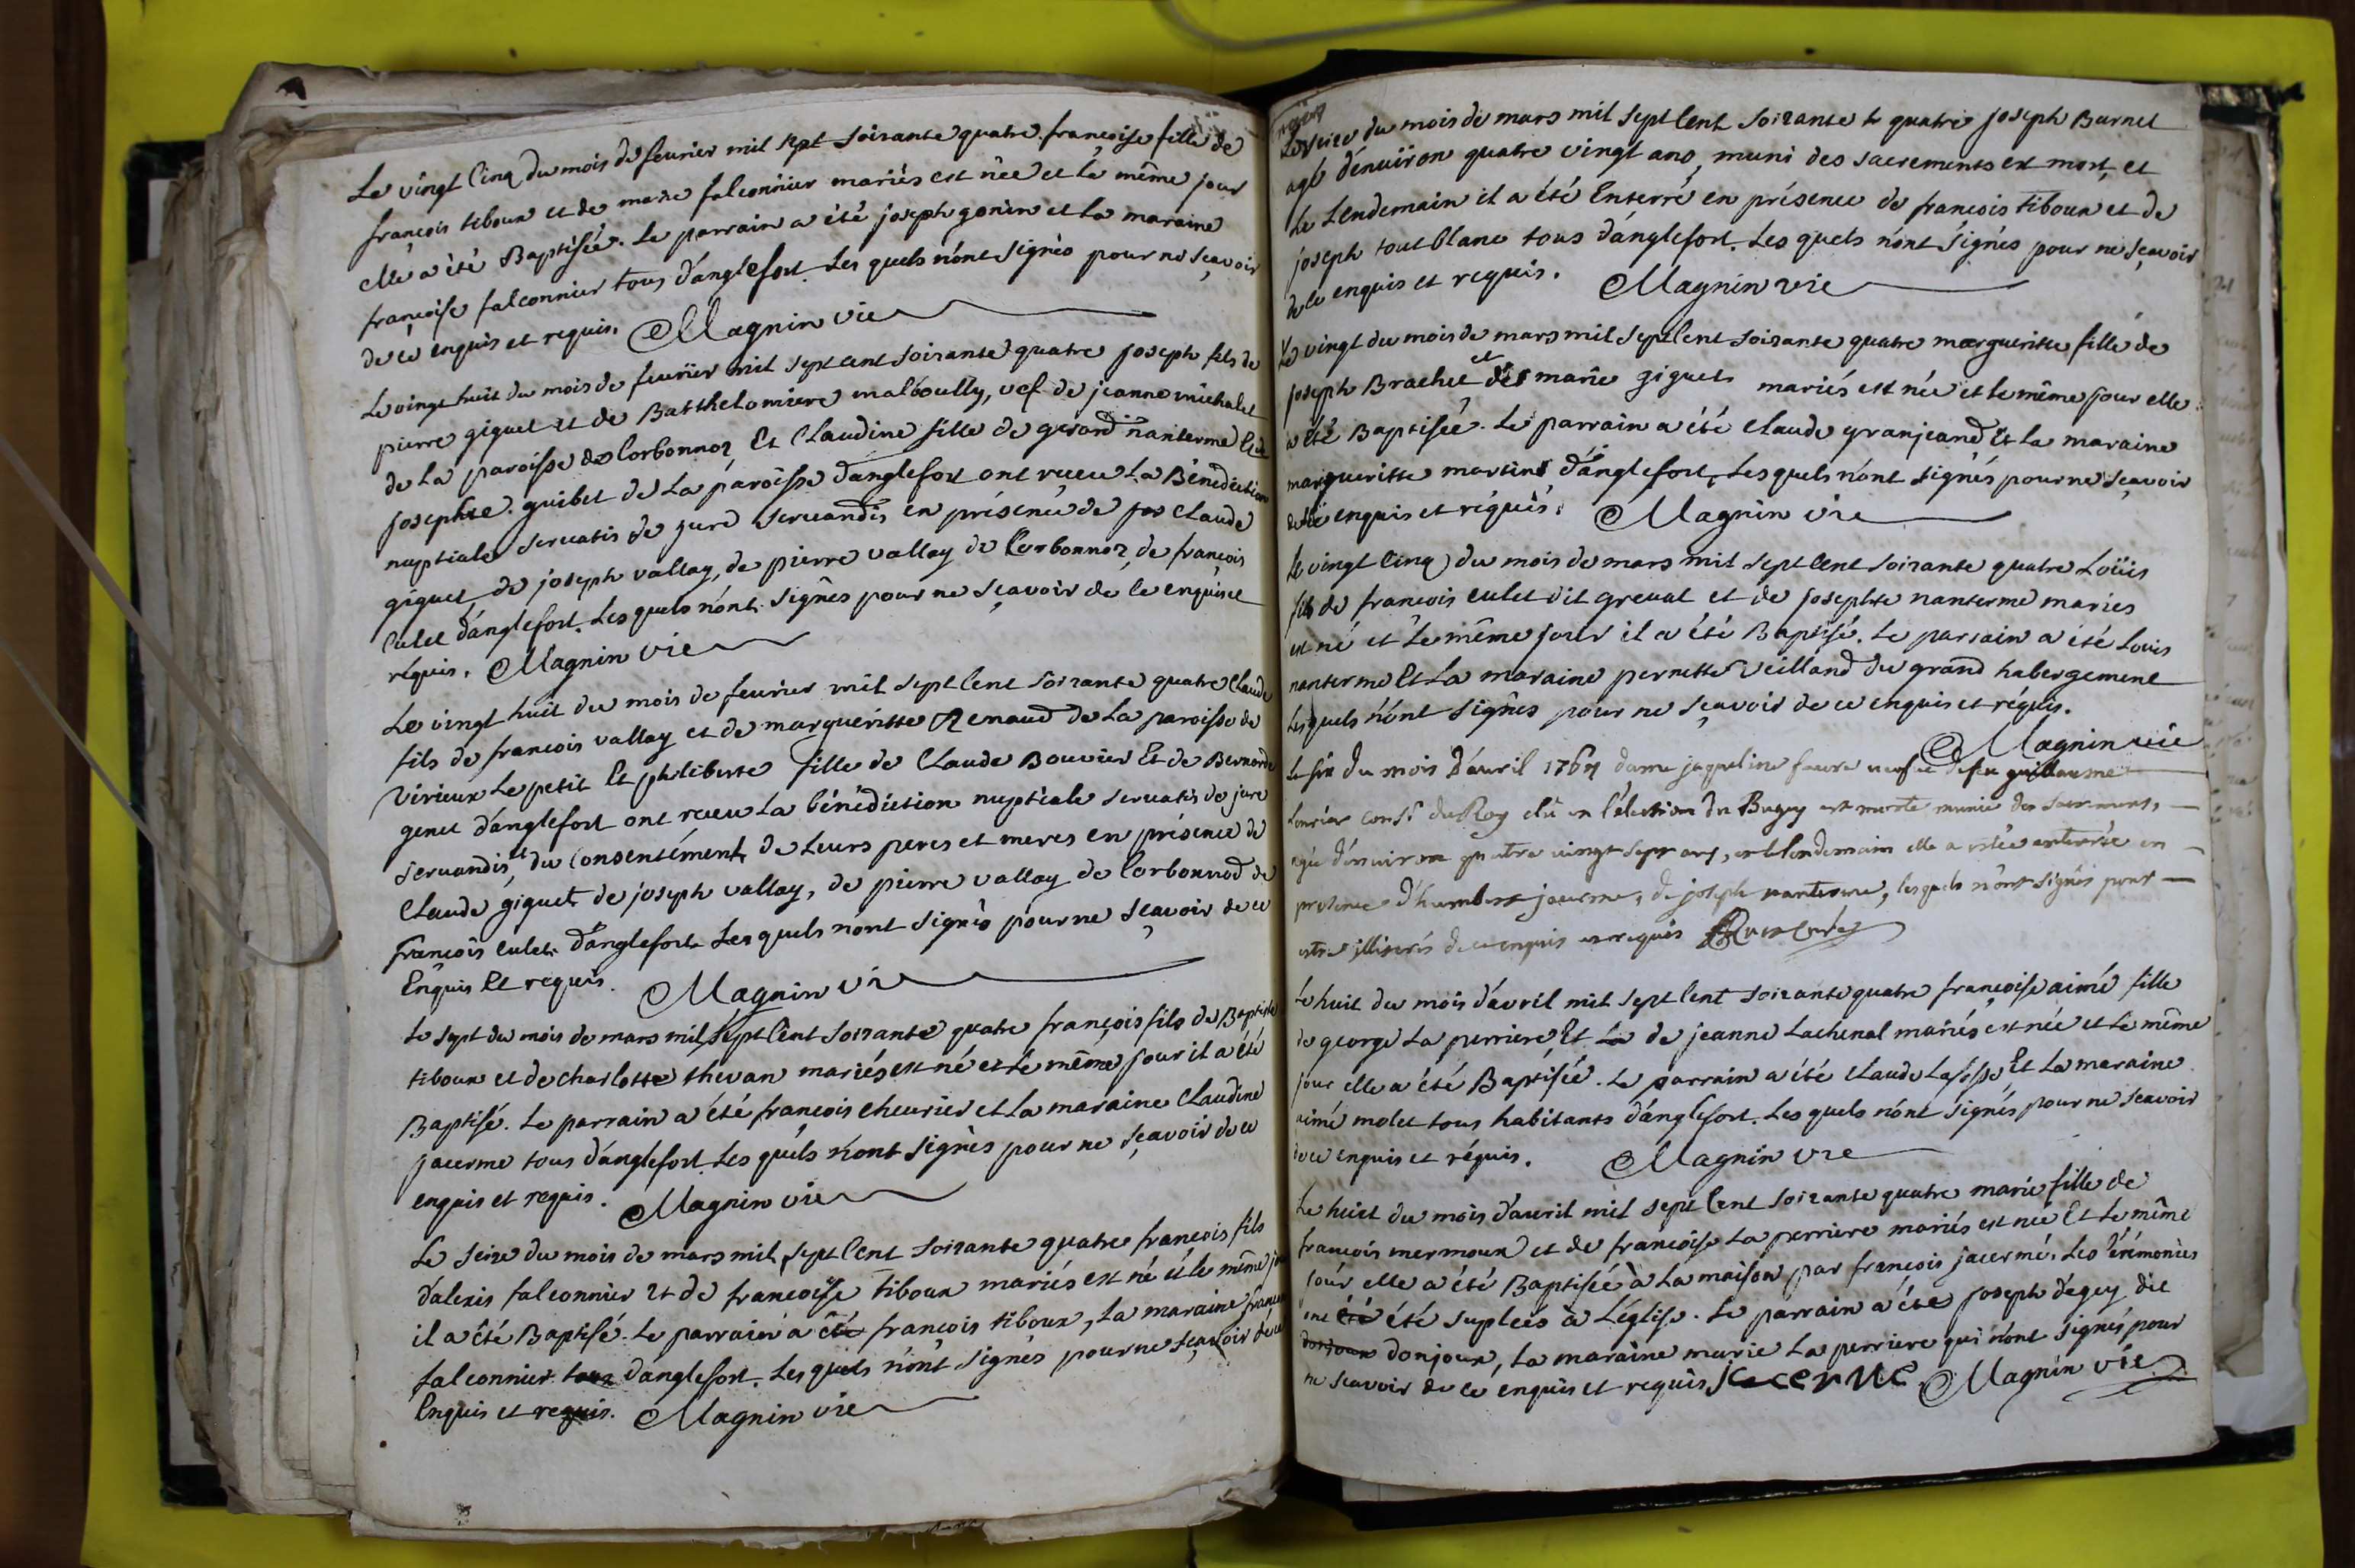 Le vingt Cinq du mois de feurier mil sept soixante quatre. françoise fille de
françois tiboux et de marie falconnier mariés est née et le même jour
elle a été Baptisée. Le parrain a été joseph gonin et la maraine
françoise falconnier tous d'anglefort Les quels n'ont signés pour ne sçavoir
de ce enquis et requis. Magnin vie
Le vingt huit du mois de feurier mil sept cent soixante quatre joseph fils de
pierre giguet et de Batthelomiere malboully, vef de jeanne michalet
de la paroisse de Corbonnoz Et Claudine fille de gerard nanterme Et de
josephte guibet de La paroisse d'anglefort ont receu La Bénédiction
nuptiale servatis de jure servandis en présence de jos Claude
giguet, de joseph vallay, de pierre vallay de Corbonnoz, de françois
Culet d'anglefort. Les quels n'ont signés pour ne sçavoir de ce enquis et
réquis. Magnin vie
Le vingt huit du mois de feurier mil sept Cent soixante quatre Claude
fils de francois vallay et de margueritte Renaud de La paroisse de
Virieux Le petit Et philiberte fille de Claude Bouvier Et de Bernarde
genet d'anglefort ont receu La bénédiction nuptiale servatis de jure
servandis, et du Consentément de Leurs peres et meres en présence de
Claude giguet de joseph vallay, de pierre vallay de Corbonnod de
françois culet d'anglefort Les quels n'ont signés pour ne sçavoir de ce
Enquis Et requis. Magnin vie
Le sept du mois de mars mil sept Cent soixante quatre françois fils de Baptiste
tiboux et de charlotte thevan mariés est né et le même jour il a été
Baptisé. Le parrain a été françois cheurier et la maraine Claudine
jacerme tous d'anglefort. Les quels n'ont signés pour ne sçavoir de ce
enquis et requis. Magnin vie
Le seize du mois de mars mil sept Cent soixante quatre francois fils
d'alexis falconnier et de francoise tiboux mariés est né et le même jour
il a été Baptisé. Le parrain a été françois tiboux, La maraine
falconnier tous d'anglefort. Les quels n'ont signés pour ne sçavoir de ce
Enquis et requis. Magnin vie
du mois de mars mil sept Cent soixante quatre joseph Burnet
agé d'enuiron quatre vingt ans, muni des sacrements est mort, et
Le Lendemain il a été Enterré en présence de francois tiboux et de
joseph tout blanc tous d'anglefort. Les quels n'ont signés pour ne sçavoir
de ce enquis et requis. Magnin vie
Le vingt du mois de mars mil sept Cent soixante quatre margueritte fille de
joseph Brachet et de marie giguet mariés est née et le même jour elle
a été Baptisée. Le parrain a été Claude granjeand Et la maraine
margueritte martin d'anglefort, Les quels n'ont signés pour ne sçavoir
de ce enquis et réquis. Magnin vie
Le vingt Cinq du mois de mars mil sept Cent soixante quatre Loüis
fils de francois culet dit greuat et de josephte nanterme mariés
est né et le même jour il a été Baptisé. Le parrain a été Louis
nanterme Et La maraine pernette veilland du grand habergement
Les quels n'ont signés pour ne sçavoir de ce enquis et réquis.
Magnin vie
Le six du mois D'auril 1764 dame jaqueline faure veufue defeu guillaume
consr du Roy elû en l'élection du Bugey est morte munie des sacrements,
agée d'enuiron quatre vingt sept ans, et le lendemain elle a estée enterrée en
présence d'humbert jacerme, de joseph nanterme, lesquels n'ont signés pour
estre illiterés de ce enquis et requis
Le huit du mois d'avril mil sept Cent soixante quatre francoise aimé fille
de george La perriere Et La de jeanne Lachenal mariés est née et le même
jour elle a été Baptisée. Le parrain a été Claude Et La maraine
aimé molet tous habitants d'anglefort. Les quels n'ont signés pour ne scavoir
de ce enquis et réquis. Magnin vie
Le huict du mois d'auril mil sept Cent soixante quatre marie fille de
francois mermoux et de francoise La perriere mariés est née Et Le même
jour elle a été Baptisée à La maison par francois jacermé. Les Cérémonies
ont été été supleés à L'église. Le parrain a été joseph degey dit
donjoux donjoux, La maraine marie La perriere qui n'ont signés pour
ne scavoir de ce enquis et requis jacerme Magnin vie